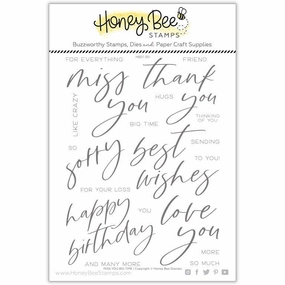 Honey Bee
STAMPS
Buzzworthy Stamps, Dies and Paper Craft Supplies
FOR EVERYTHING
FRIEND
miss
thank
you
HUGS
you
LIKE CRAZY
BIG TIME
THINKING
OF YOU
SO
sorry
best
SENDING
TO YOU
FOR YOUR LOSS
wishes
happy
YOU
love
birthday
you
MORE
AND MANY MORE
SO MUCH
www.HoneyBeeStamps.com